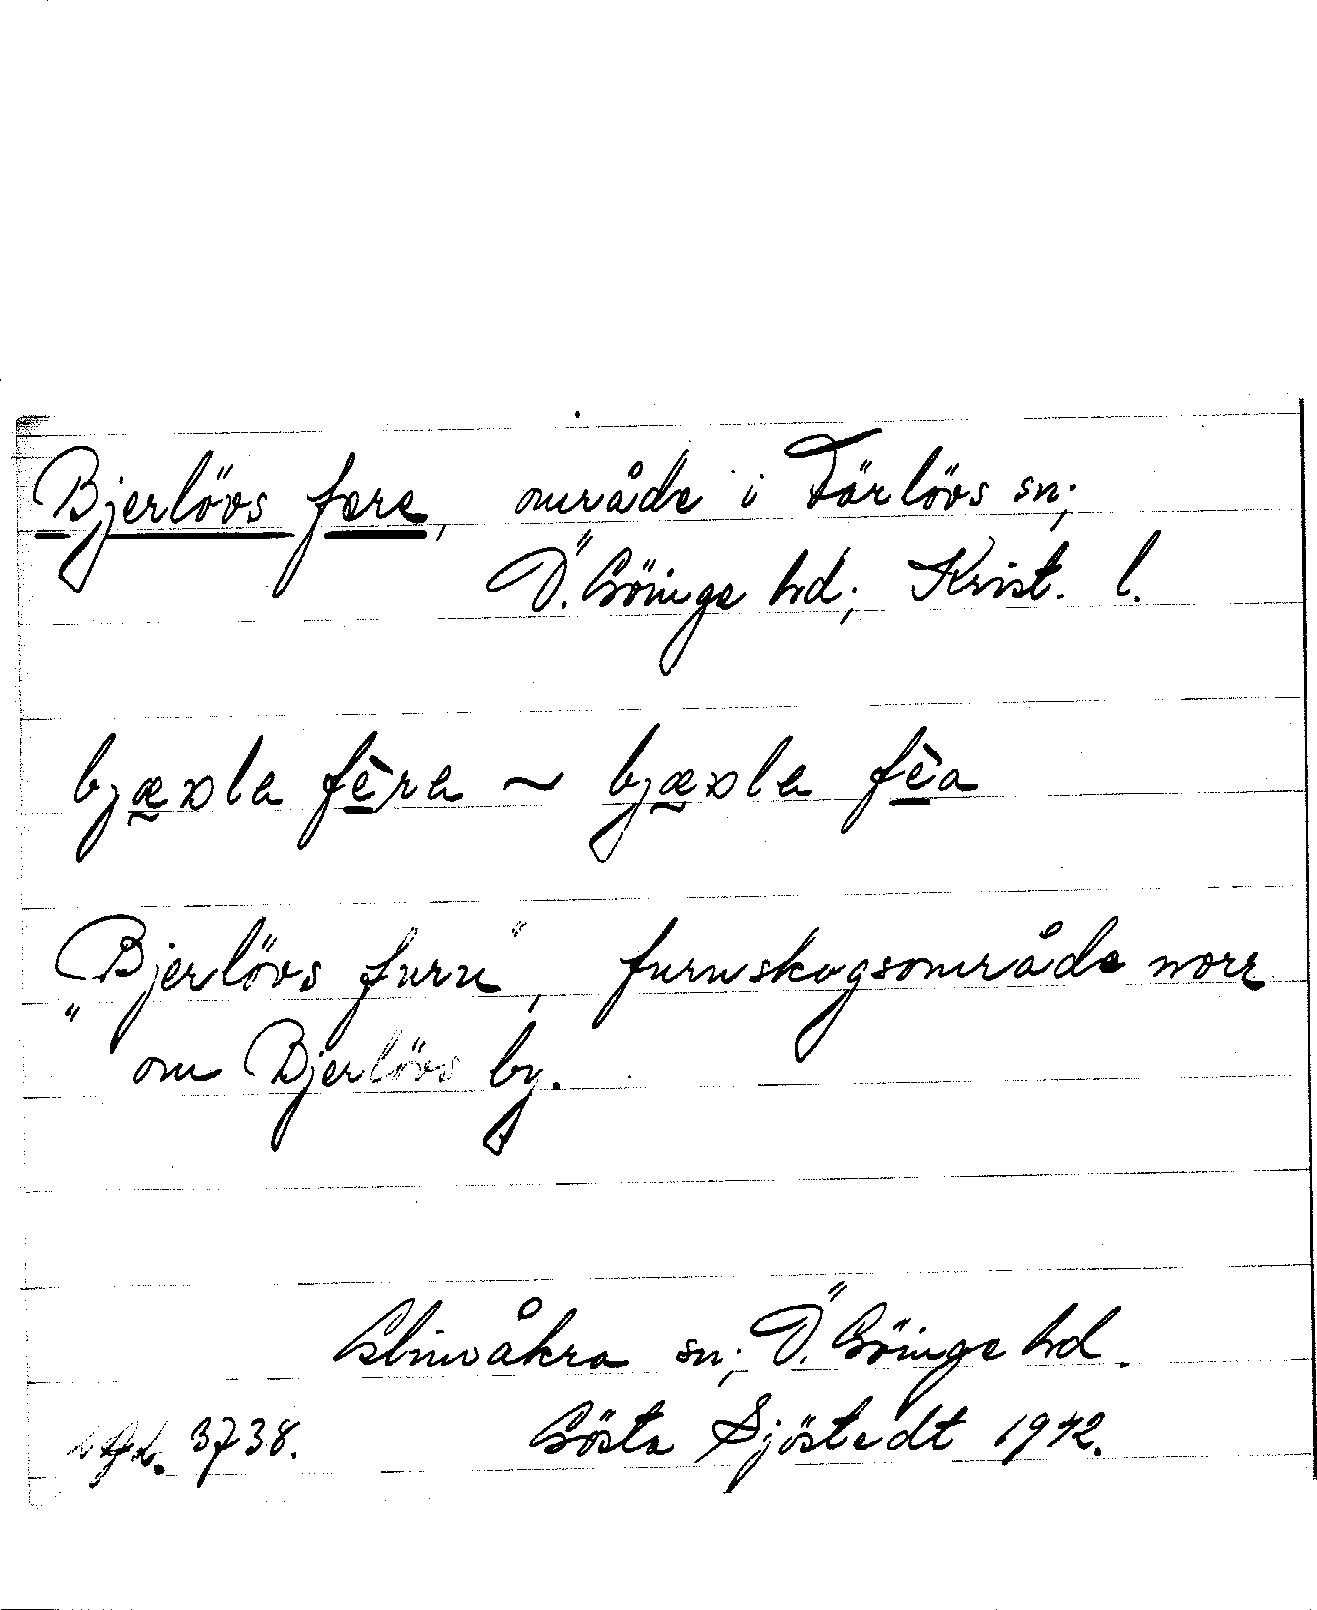 Bjerlövs fere, område i Färlövs sn;
Ö. Göinge hd; Krist. l.
bjæʀla fèra ~ bjæʀla fèa
"Bjerlövs furu", furuskogsområde norr
om Bjerlövs by.
Glimåkra sn; Ö. Göinge hd.
3738. Gösta Sjöstedt 1942.